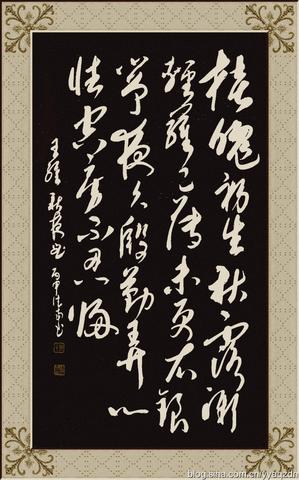 桂魄初生秋露微
輕羅已薄未更衣銀
箏夜久殷勤弄心
怯空房不忍歸
王維秋夜曲丙申
blog.sina.com.cn/yyaqzdn